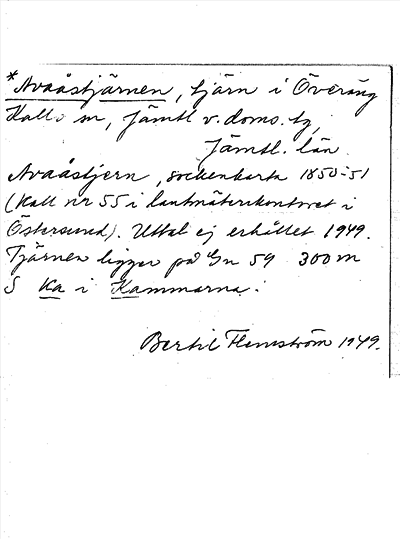 *Avaåstjärnen, tjärn i Överäng
Kalls sn, Jämtl v. doms. tg,
Jämtl. län.
Avaåstjern, sockenkarta 1850-51
(Kall nr 55 i lantmäterikontoret i
Östersund). Uttal ej erhållet 1949.
Tjärnen ligger på Gn 59 300 m
S Ka i Kammarna.
Bertil Flemström 1949.